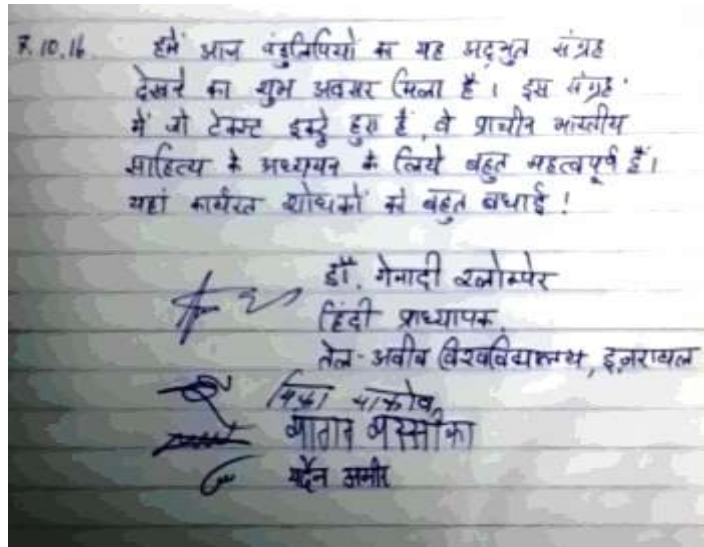 7.10.16 हमें आज पंडुलिपियों का यह अद्भुत संग्रह
देखने का शुभ अवसर मिला है। इस संग्रह
में जो टेक्स्ट इकट्ठे हुए हैं, वे प्राचीन भारतीय
साहित्य के अध्ययन के लिये बहुत महत्वपूर्ण हैं।
यहां कार्यरत शोधकों को बहुत बधाई!
डॉ. गेनादी श्लोम्पेर
हिंदी प्राध्यापक,
तेल-अवीव विश्वविद्यालय, इज़रायल
याकोव,
यर्देन अमीर